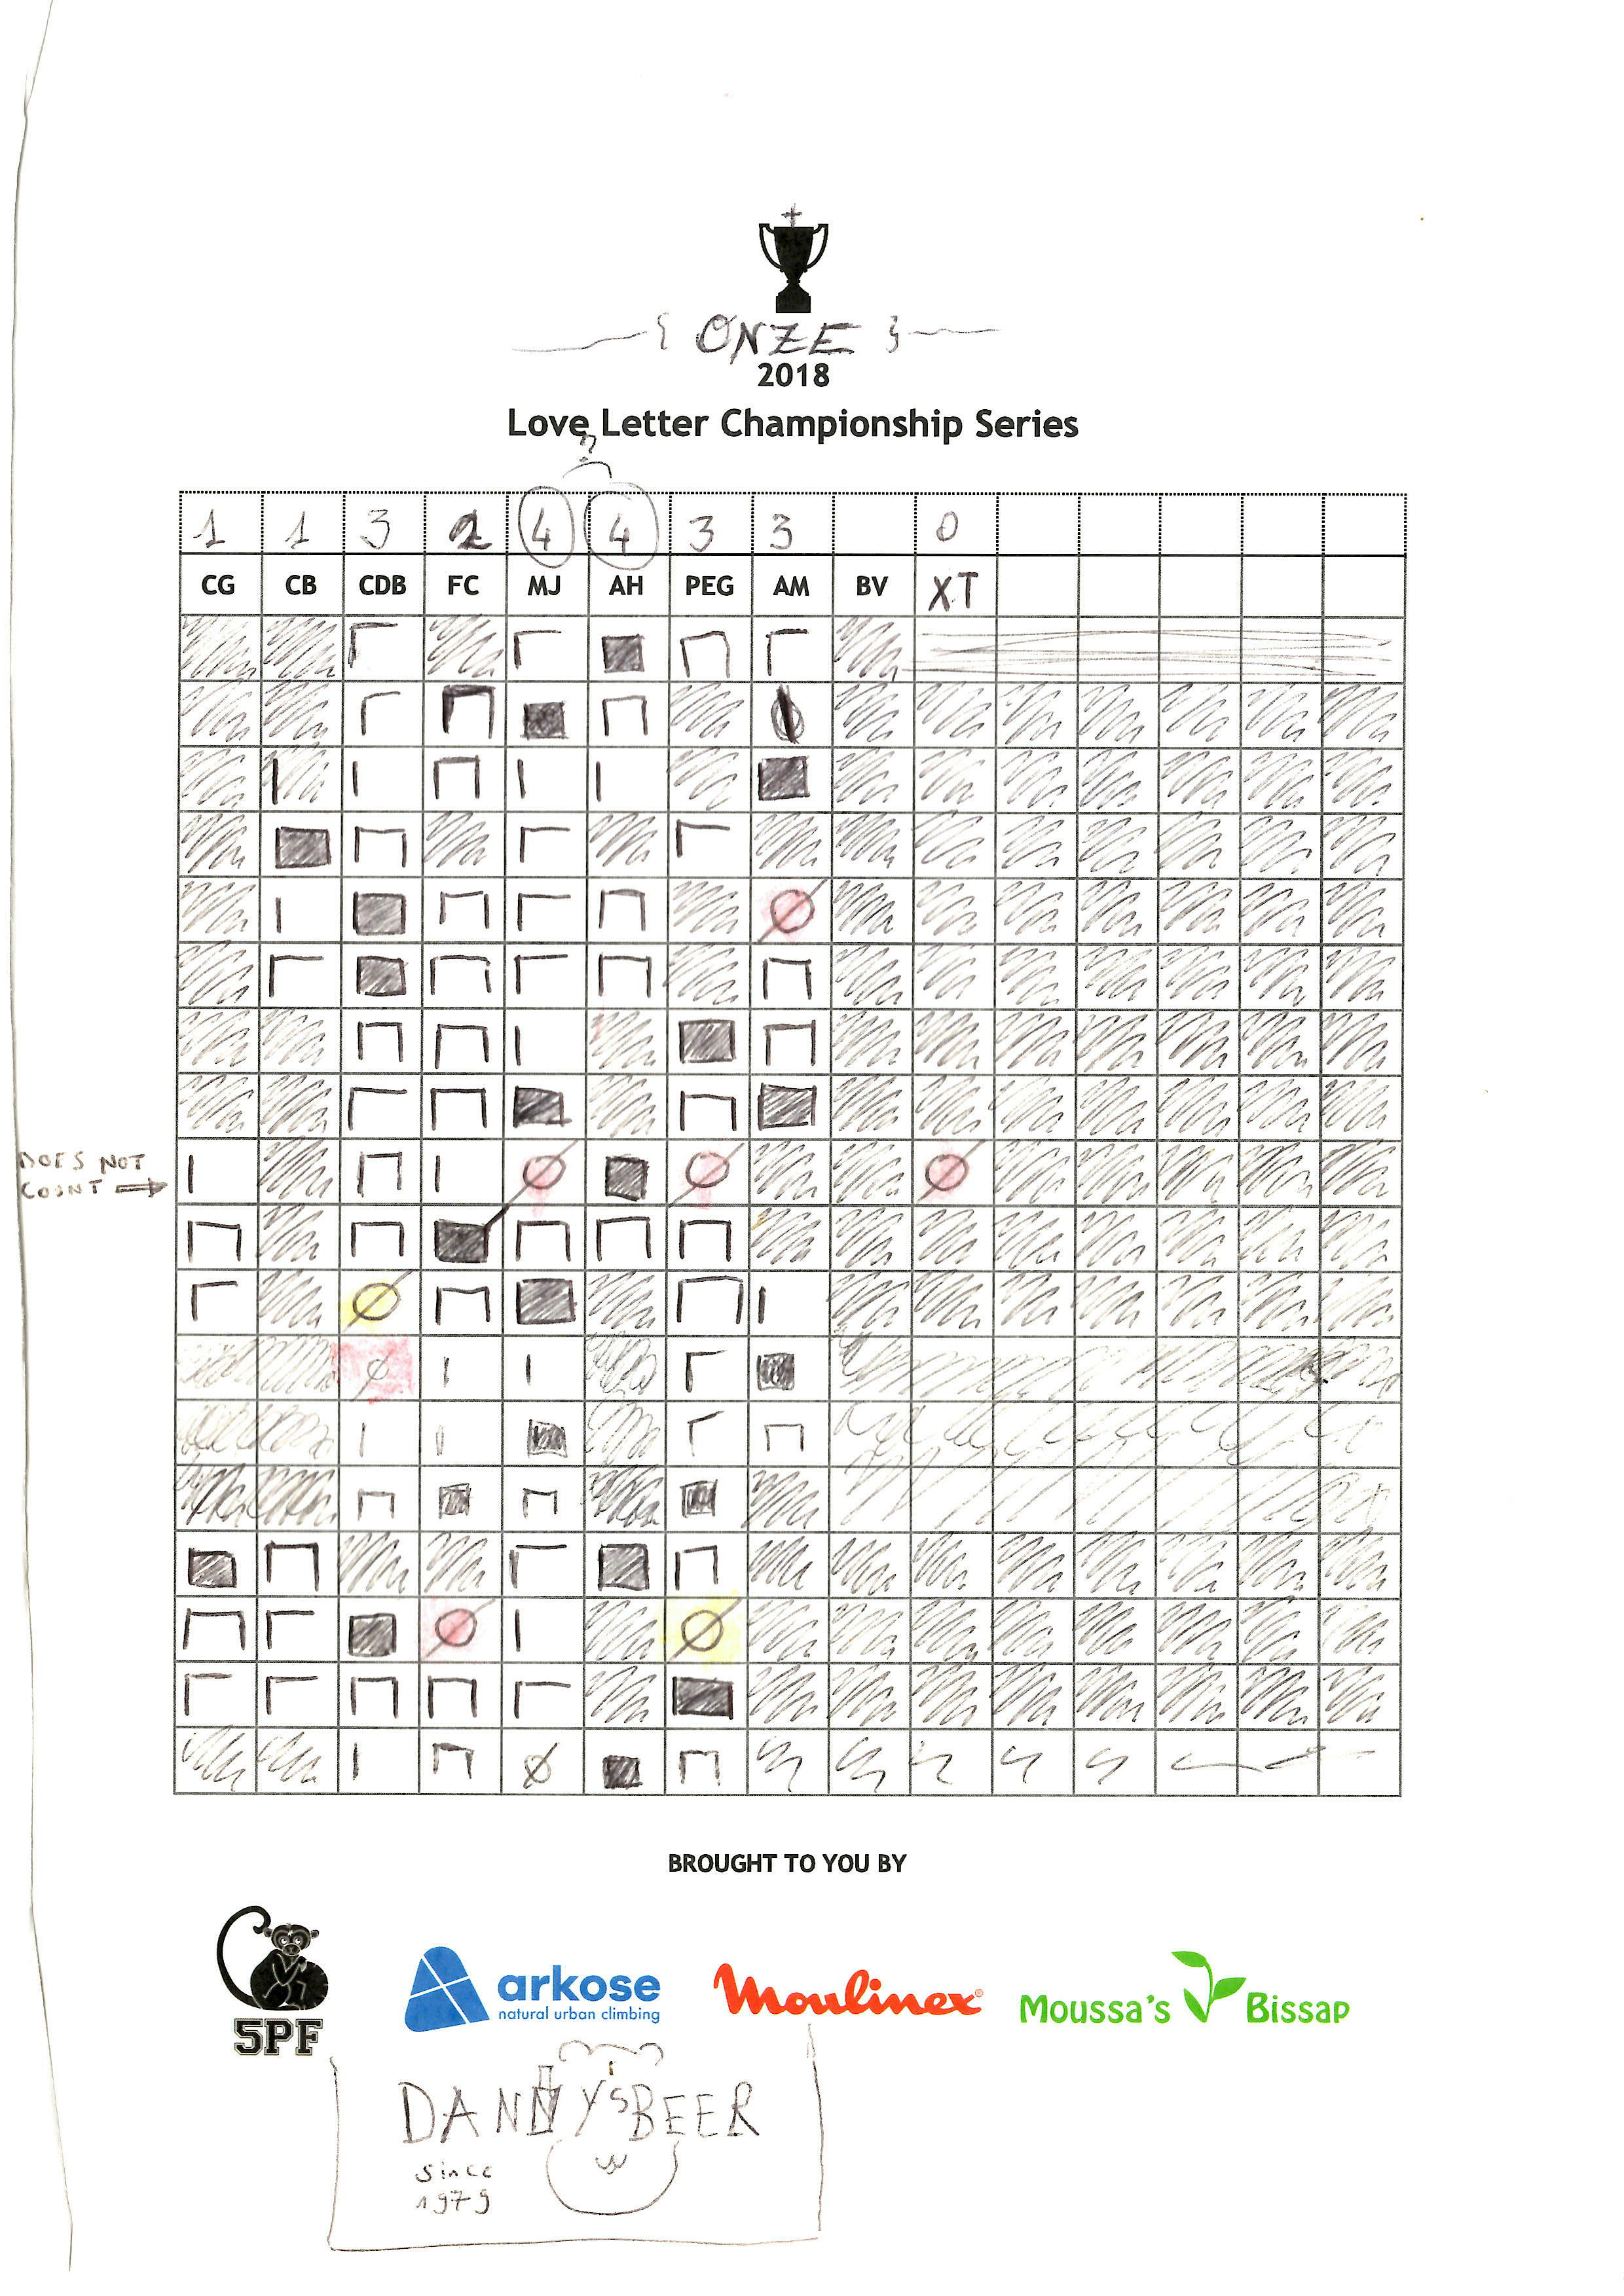 { ONZE }
2018
Love Letter Championship Series
?
1 1 3 2 4 4 3 3 0
CG CB CDB FC MJ AH PEG AM BV XT
DOES NOT
COUNT
BROUGHT TO YOU BY
5PF
arkose
natural urban climbing
Moulinex®
Moussa's Bissap
DANNY'S BEER
since
1979